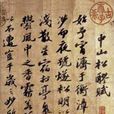 中山松醪賦
始予宵濟於衡漳
涉而夜號燧松明
淺散星宿於亭皋
鬱風中之香霧若
以不遭豈千歲之妙